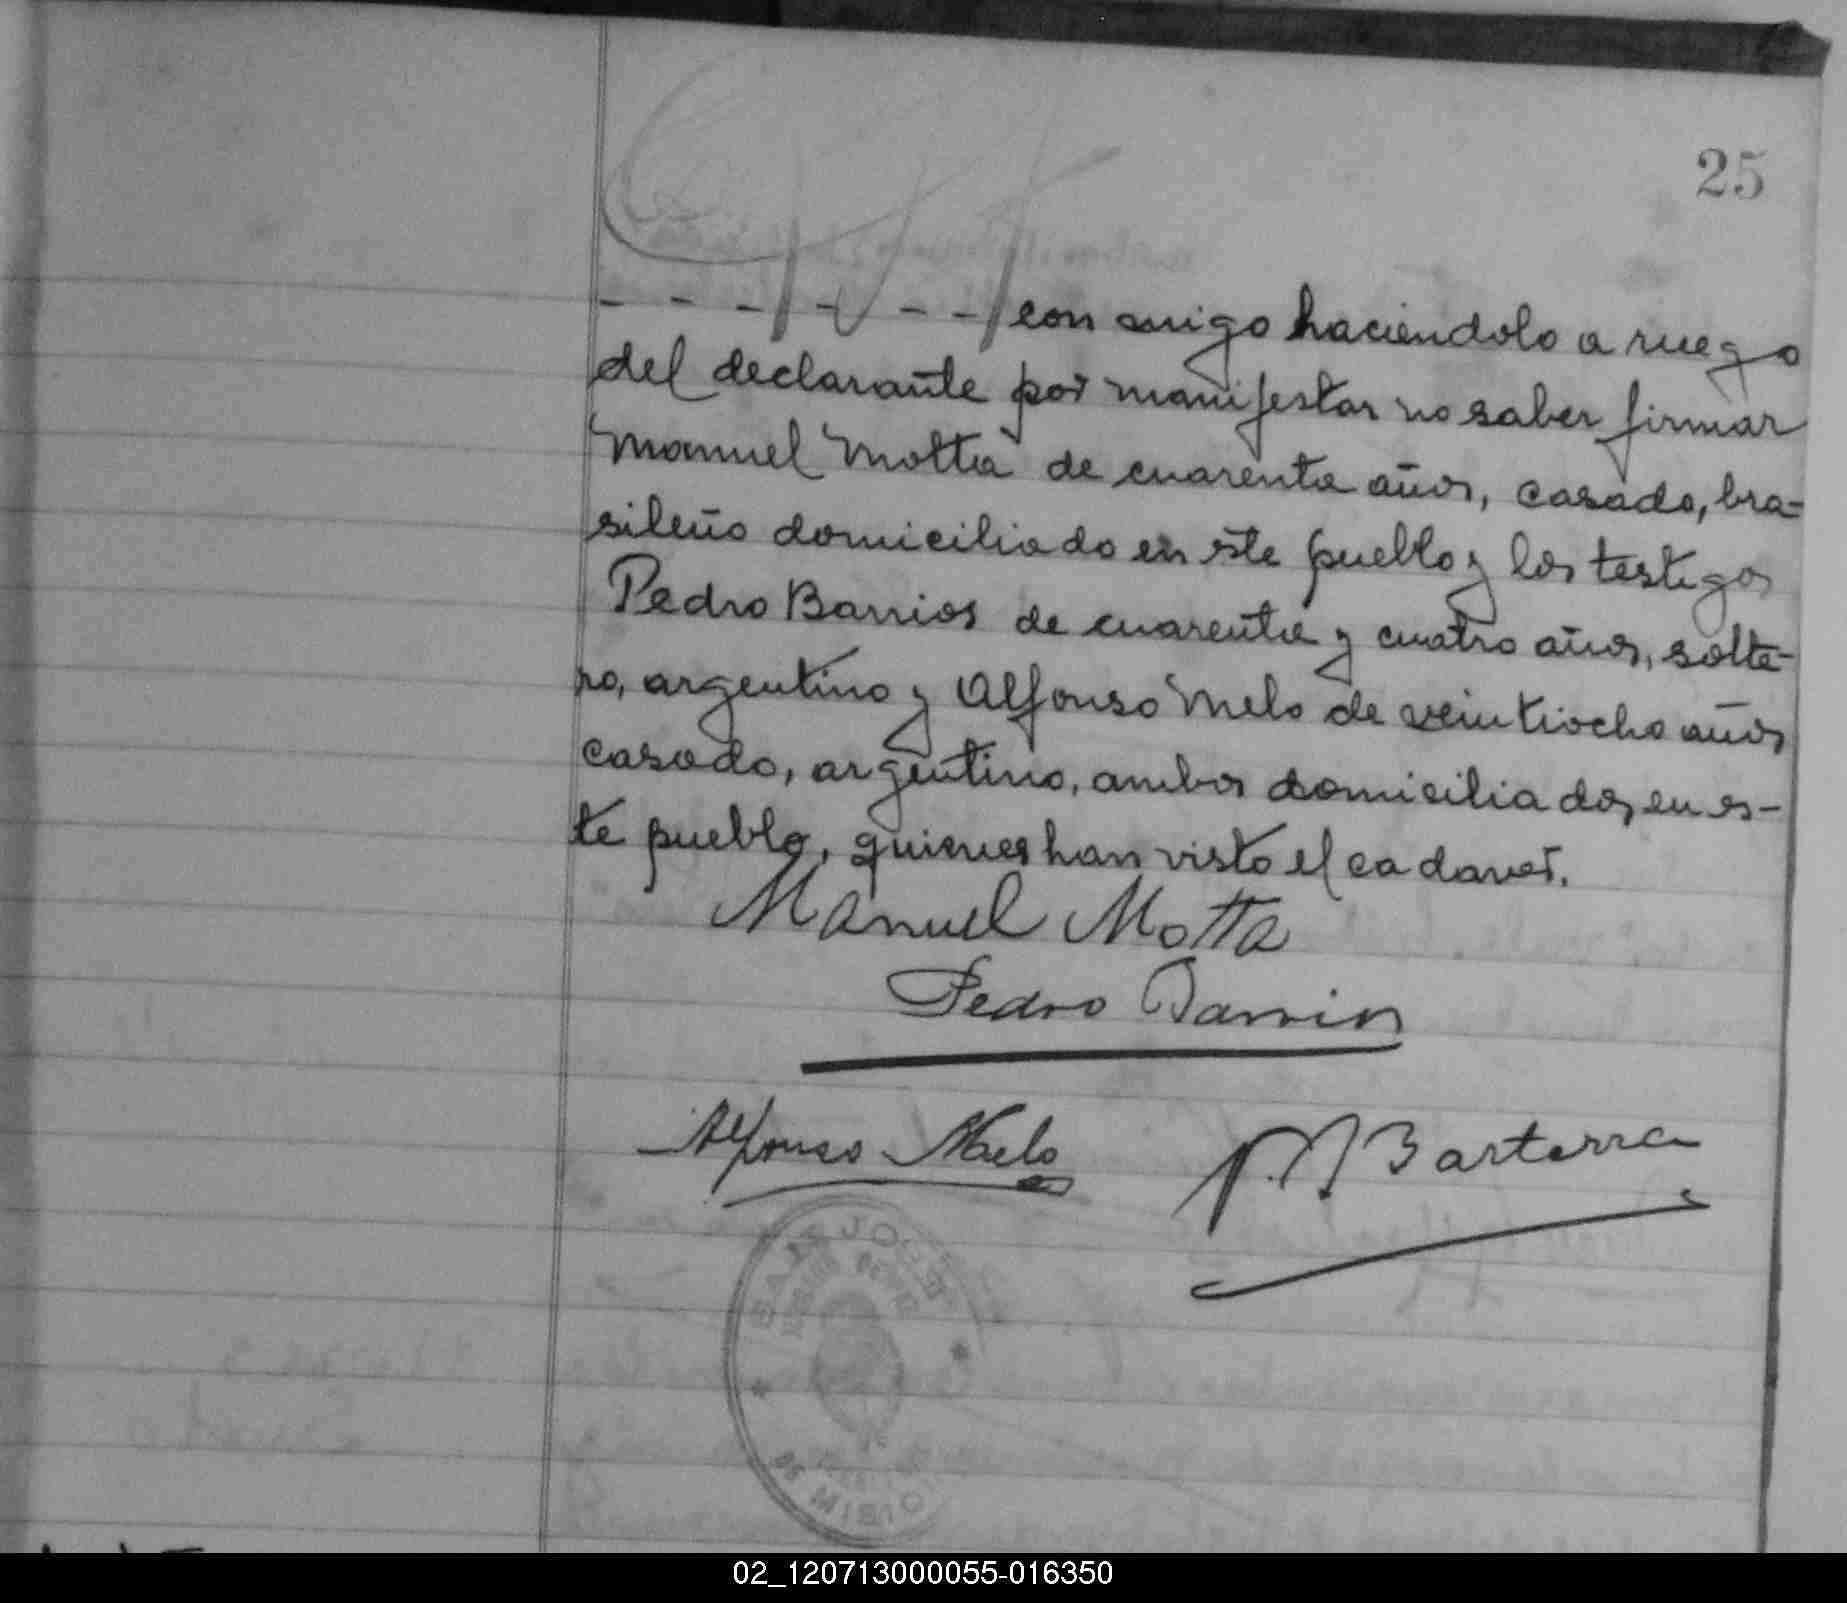 25
- - - - - - con migo haciendolo a ruego
del declarante por manifestar no saber firmar
Manuel Motta de cuarenta años, casado, bra=
sileño domiciliado en este pueblo y los testigos
Pedro Barrios de cuarenta y cuatro años, solte-
ro, argentino y Alfonso Melo de veintiocho años
casado, argentino, ambos domiciliados en es-
te pueblo, quienes han visto el cadaver.
Manuel Motta
Pedro Barrios
Alfonso Melo
Basterra
SAN JOSE
DE MISIO
02_120713000055-016350